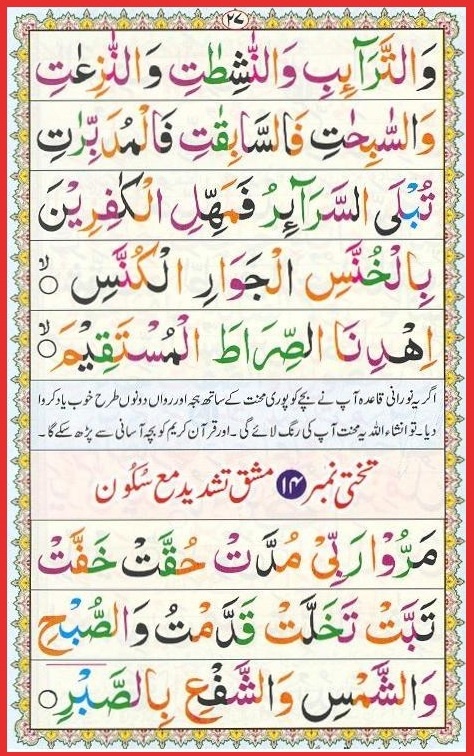 ۲۷
وَالتَّرَآئِبِ وَالنّٰشِطٰتِ وَالنّٰزِعٰتِ
وَالسّٰبِحٰتِ فَالسّٰبِقٰتِ فَالْمُدَبِّرٰتِ
تُبْلَى السَّرَآئِرُ فَمَهِّلِ الْكٰفِرِيْنَ
بِالْخُنَّسِ الْجَوَارِ الْكُنَّسِ ۙ
اِهْدِنَا الصِّرَاطَ الْمُسْتَقِيْمَ ۙ
اگر یہ نورانی قاعدہ آپ نے بچے کو پوری محنت کے ساتھ ہجہ اور رواں دونوں طرح خوب یاد کروا
دیا۔ تو انشاء اللہ یہ محنت آپ کی رنگ لائے گی۔ اور قرآن کریم کو بچہ آسانی سے پڑھ سکے گا۔
تختی نمبر ۱۴ مشق تشدید مع سُکُون
مَرُّوْا رَبِّيْ مُدَّتْ حُقَّتْ خَفَّتْ
تَبَّتْ تَخَلَّتْ قَدَّمْتُ وَالصُّبْحِ
وَالشَّمْسِ وَالشَّفْعِ بِالصَّبْرِ ○